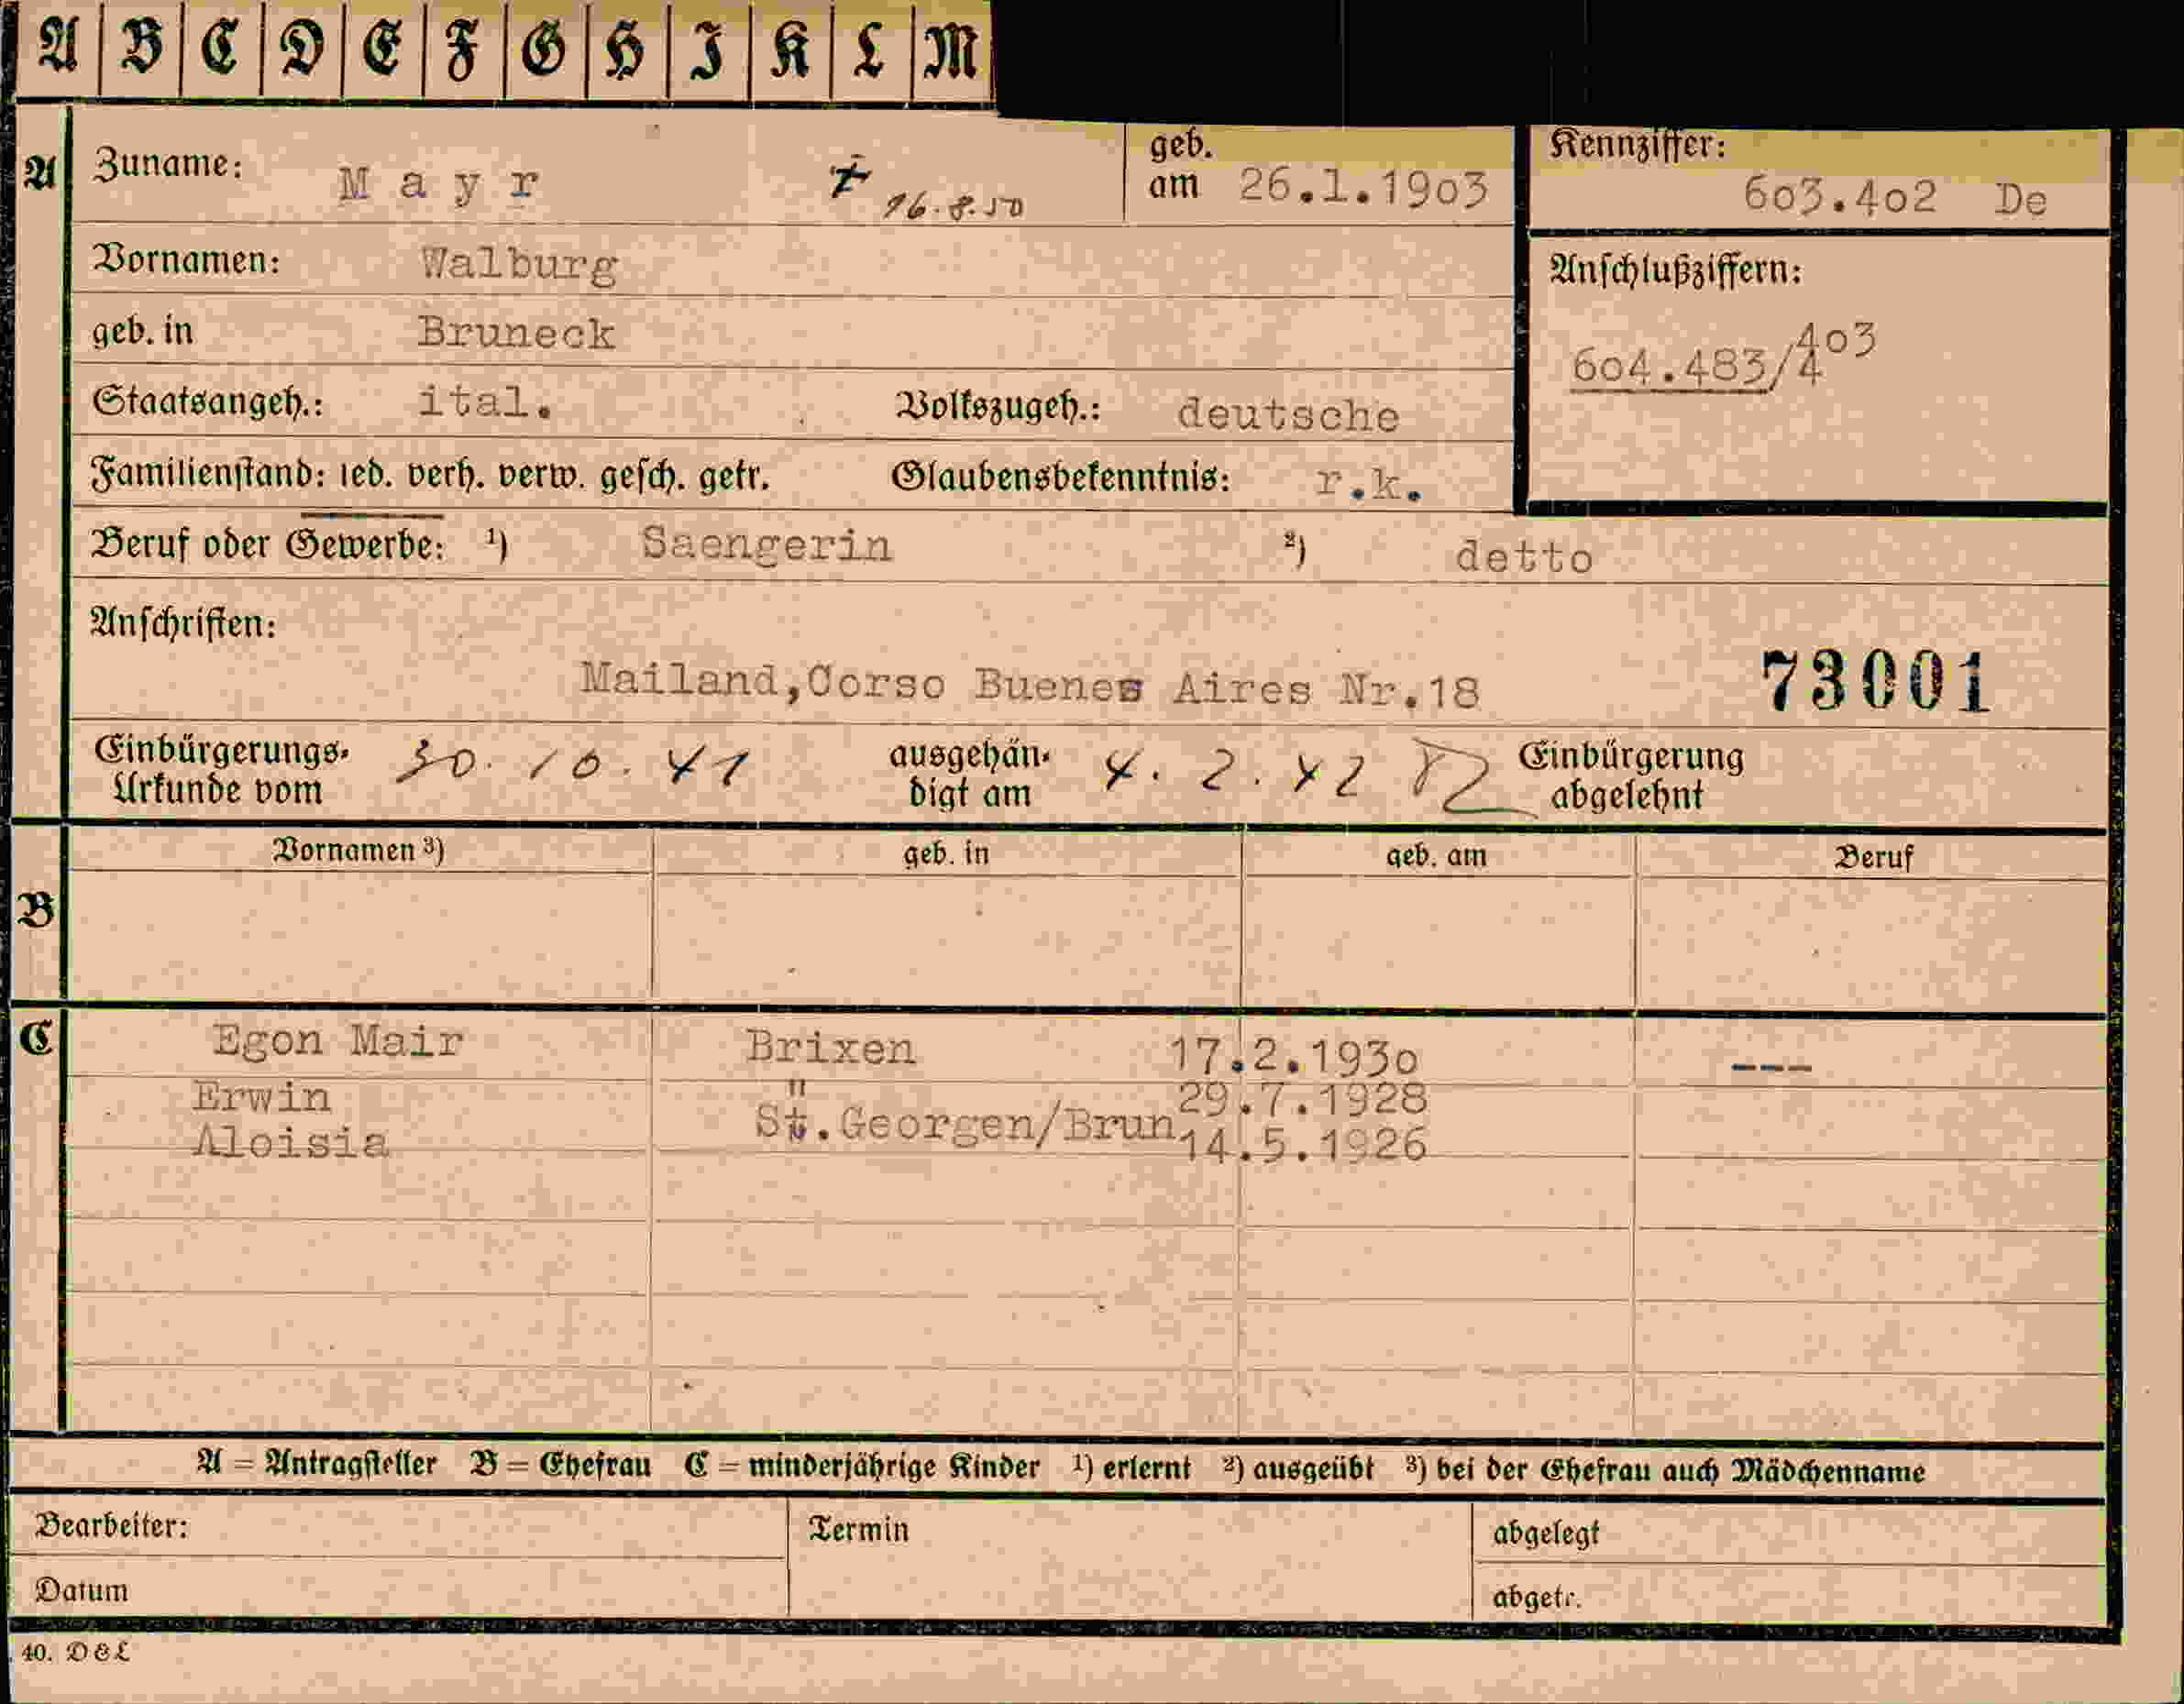 A B C D E F G H I K L M
A Zuname: Mayr 16.8.50 geb. am 26.1.1903 Kennziffer: 603.402 De
Vornamen: Walburg Anschlußziffern:
geb. in Bruneck 604.483/403
Staatsangeh.: ital. Volkszugeh.: deutsche
Familienstand: led. verh. verw. gesch. getr. Glaubensbekenntnis: r.k.
Beruf oder Gewerbe: 1) Saengerin 2) detto
Anschriften:
Mailand,Corso Buenes Aires Nr.18 73001
Einbürgerungs-Urkunde vom 30.10.41 ausgehändigt am 4.2.42 Einbürgerung abgelehnt
Vornamen 3) geb. in geb. am Beruf
B
C Egon Mair Brixen 17.2.1930 ---
Erwin " 29.7.1928
Aloisia St.Georgen/Brun. 14.5.1926
A = Antragsteller B = Ehefrau C = minderjährige Kinder 1) erlernt 2) ausgeübt 3) bei der Ehefrau auch Mädchenname
Bearbeiter: Termin abgelegt
Datum abgetr.
40. D&L